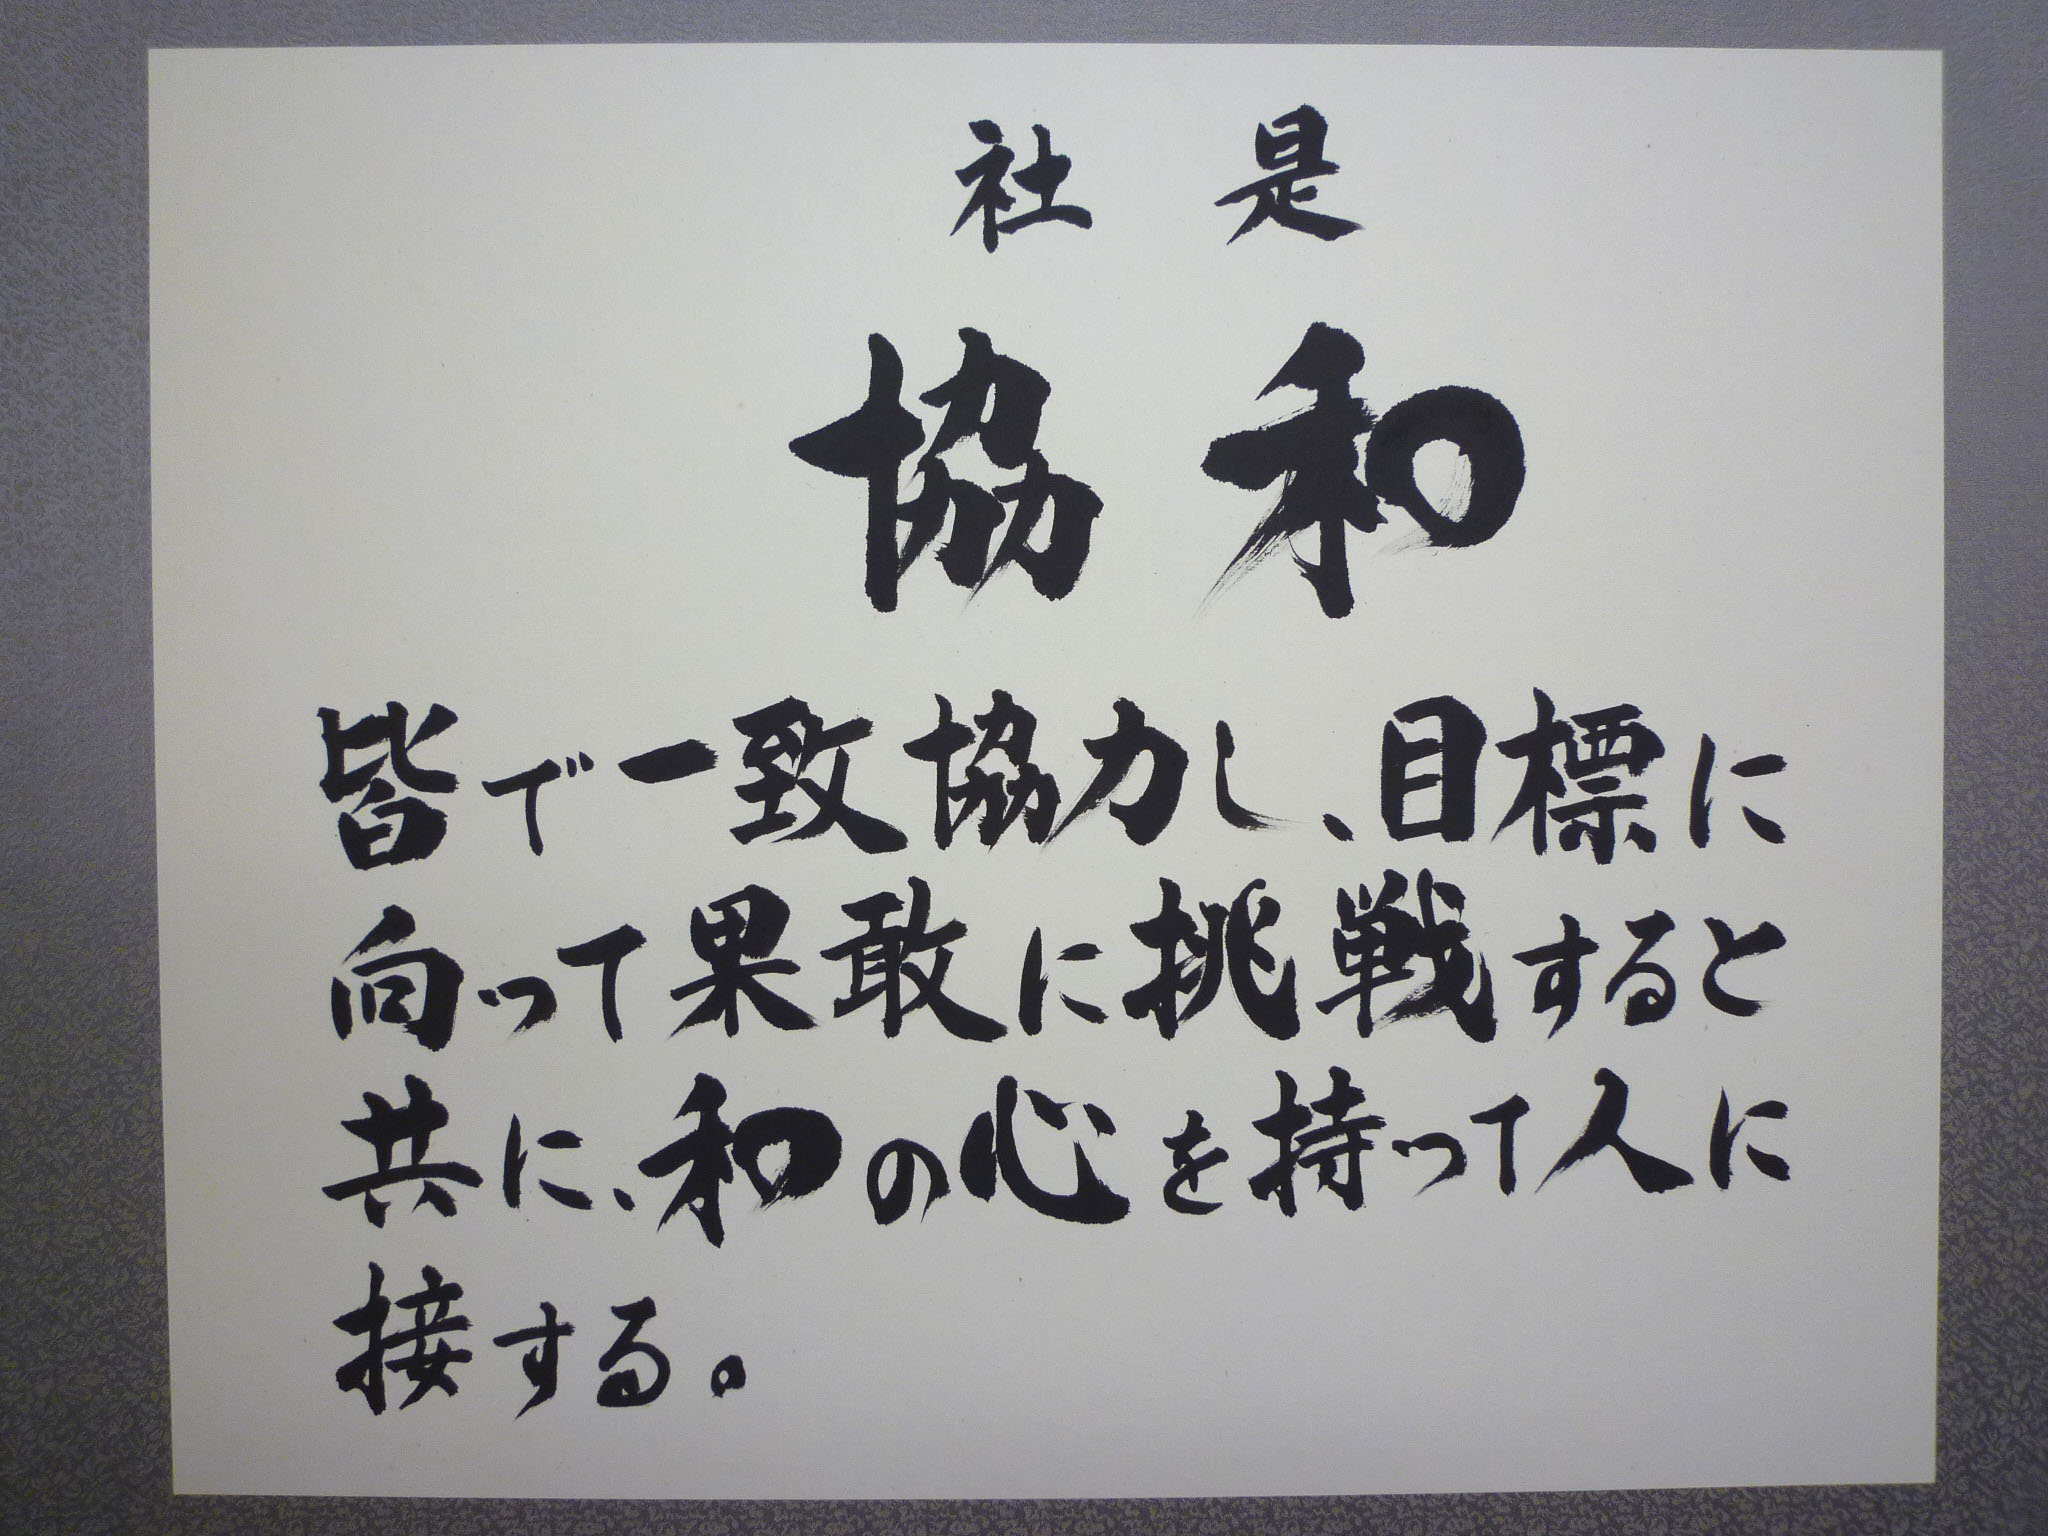 社是
協和
皆で一致協力し、目標に
向って果敢に挑戦すると
共に、和の心を持って人に
接する。